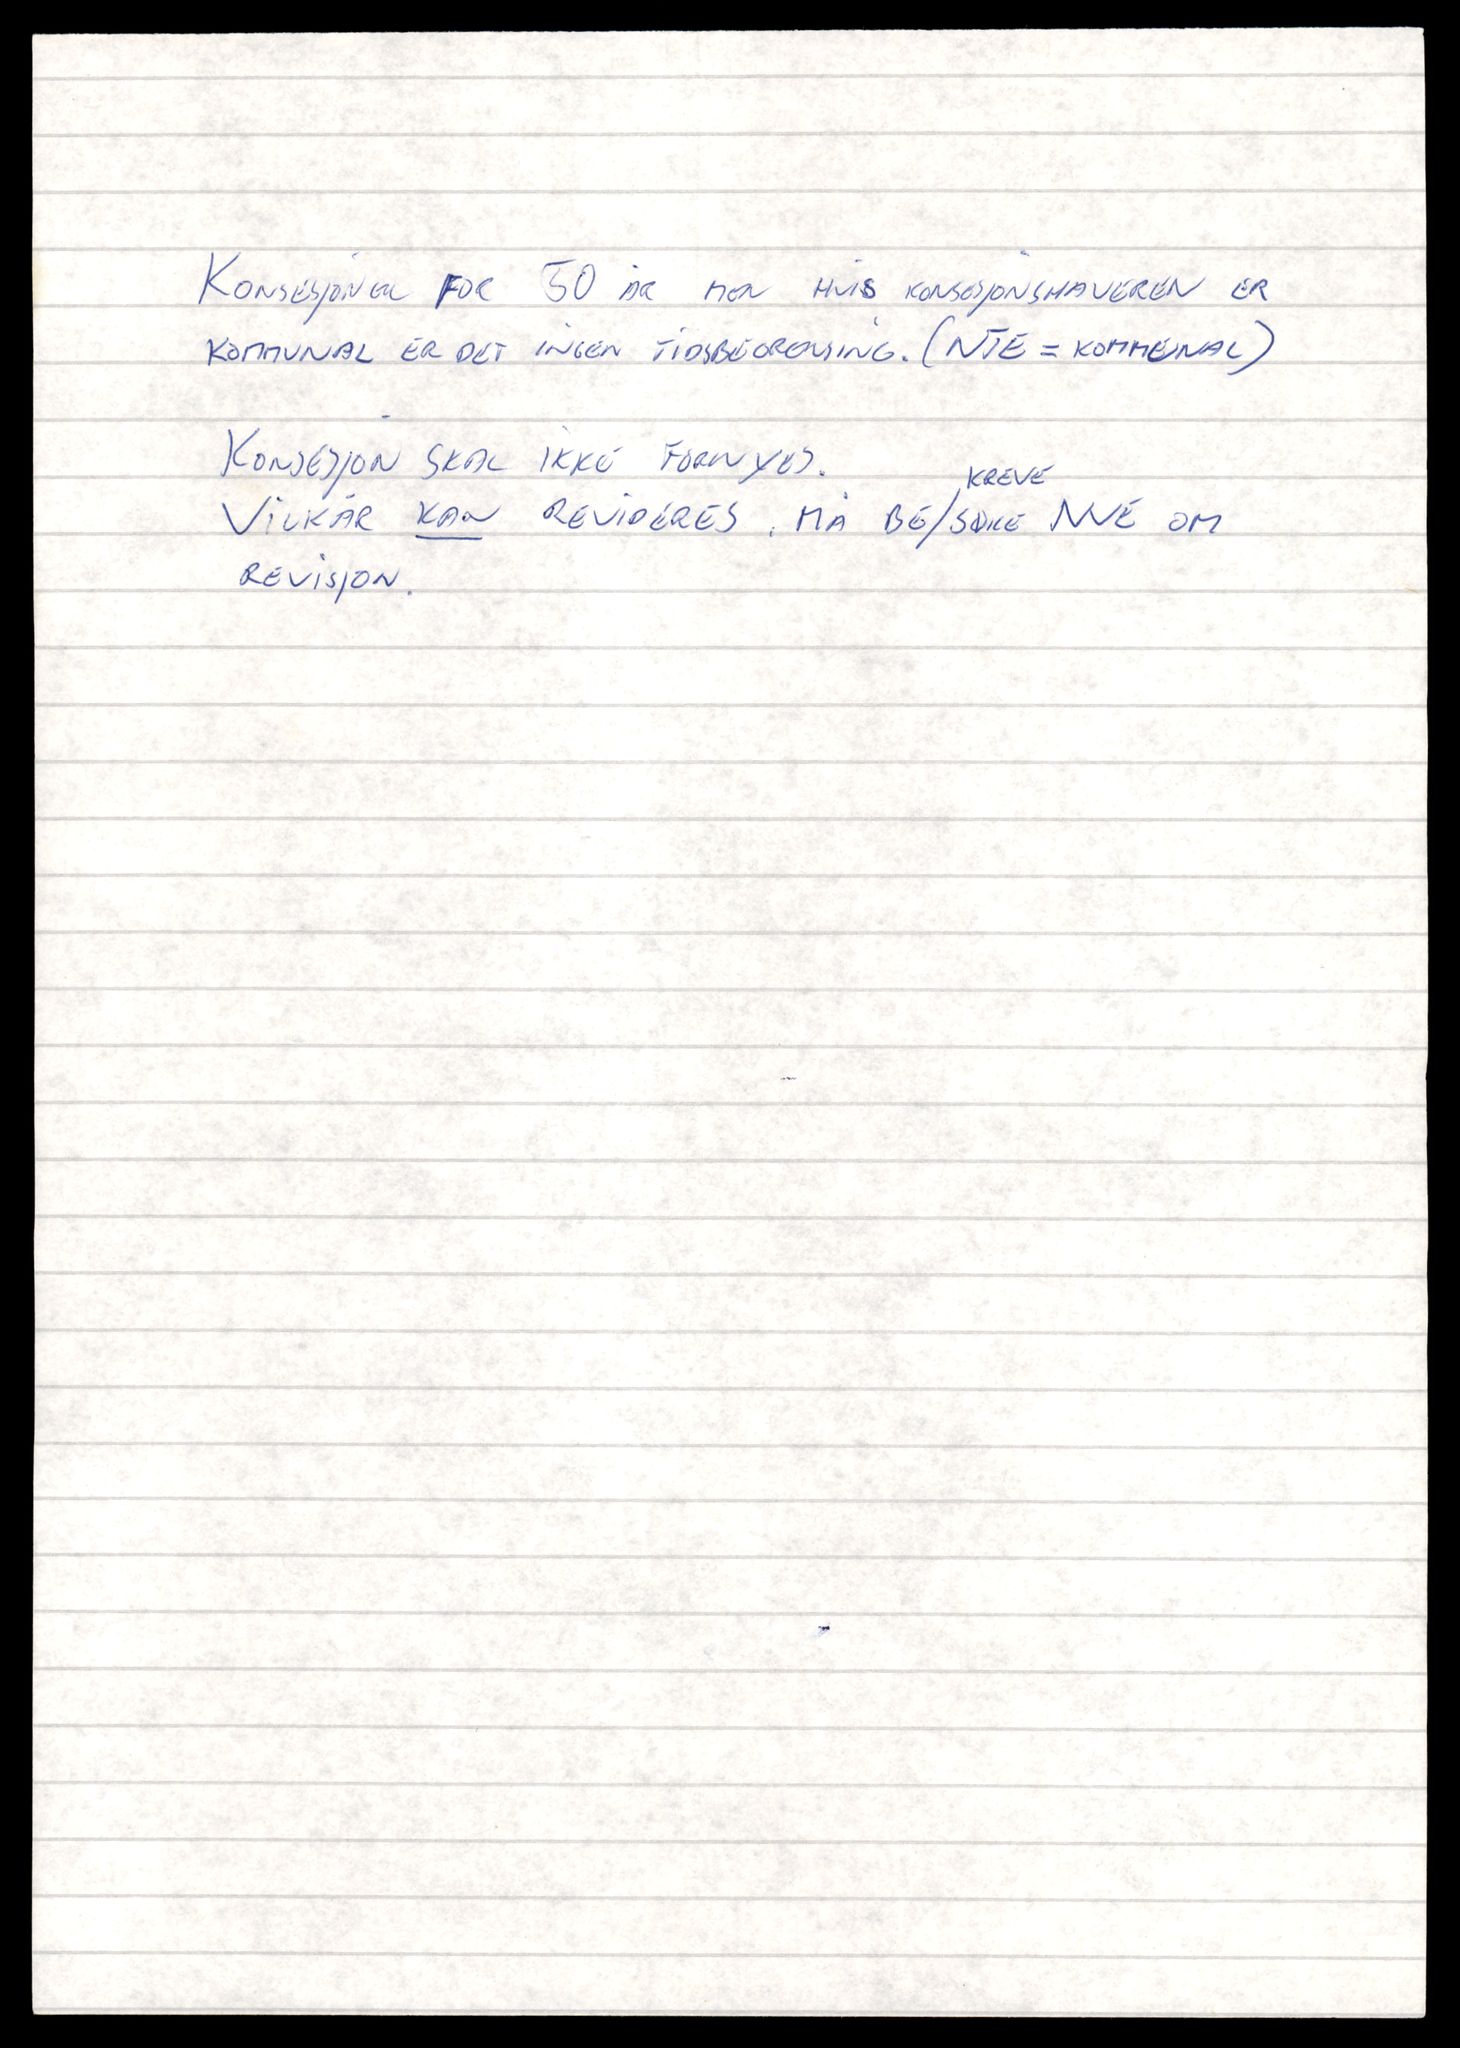 KONSESJONER FOR 50 ÅR MEN HVIS KONSESJONSHAVEREN ER
KOMMUNAL ER DET INGEN TIDSBEGRENSING. (NTE = KOMMUNAL)
KONSESJON SKAL IKKE FORNYES.
KREVE
VILKÅR KAN REVIDERES. MÅ BE/SØKE NVE OM
REVISJON.